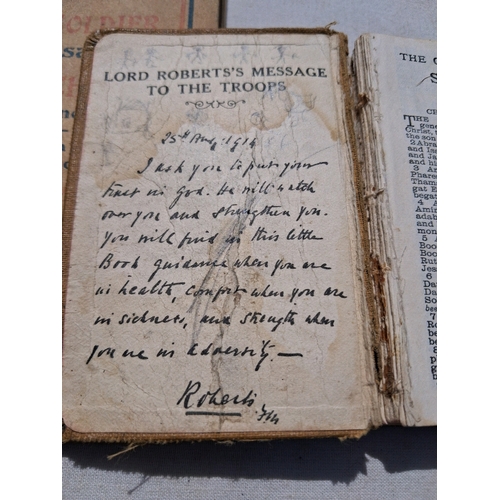 LDIER
LORD ROBERTS'S MESSAGE
TO THE TROOPS
25th Aug. 1914
I ask you to put your
trust in God. He will watch
over you and strengthen you.
You will find in this little
Book guidance when you are
in health, comfort when you are
in sickness, and strength when
you are in adversity.—
Roberts
FM
THE
CH
THE
gene
Christ, t
the son
2 Abra
and Isa
and Ja
and his
3 An
Phares
Tham
gat E
begat
4 A
Amin
adab
and
mon
5
Boo
Boo
Rut
Jes
6
Da
Da
So
bee
7
Ro
be
be
8
p
g
b